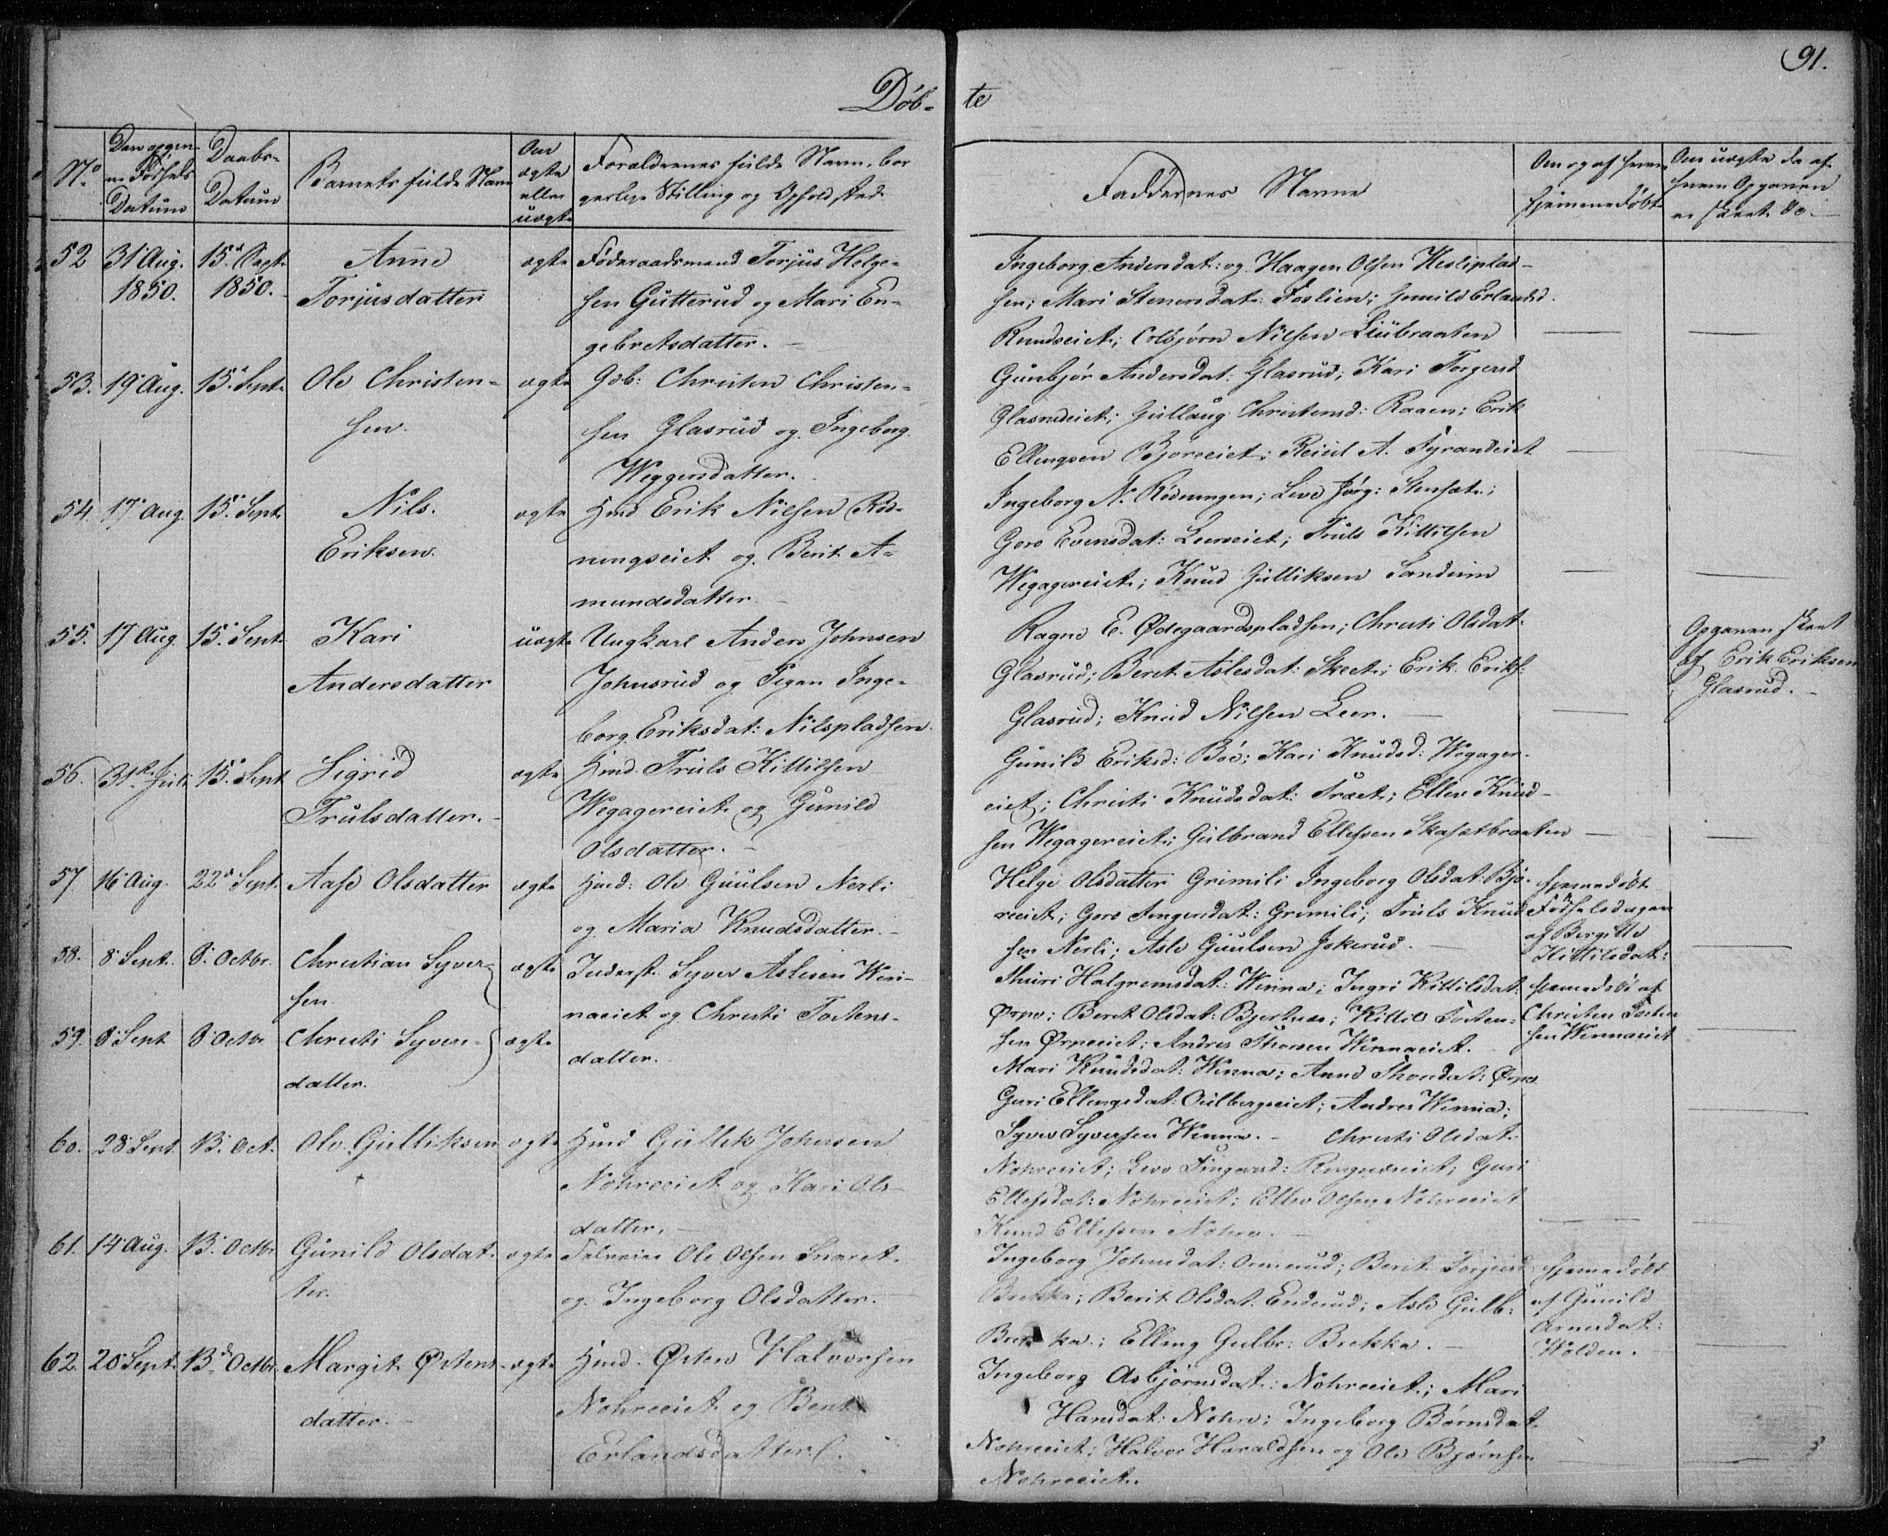 91.
Døb-
te
No
Den opgivne Fødsels Datum
Daabs-Datum
Barnets fulde Navn
Om ægte eller uægte
Forældrenes fulde Navn, borgerlige Stilling og Opholdsted
Faddernes Navne
Om og af hvem hjemmedøbt
Om uægte da af hvem Opgaven er skeet &c.
52 31 Aug. 1850. 15d Sept. 1850. Anne Torjusdatter ægte Føderaadsmand Torjus Helge-
sen Gutterud og Mari En-
gebretsdatter.
Ingeborg Andersdat: og Haagen Olsen
sen; Mari Stenersdat: Foslien; Gunild Erlandsd.
Rundseiet; Nilsen Liibraaten
53. 19 Aug. 15. Sept. Ole Christen-
sen. ægte Gdb: Christen Christen-
sen Glasrud og Ingeborg
Weggersdatter.
Gunbjør Andersdat: Glasrud; Kari Torgersd
Glasrudeiet; Gullaug Christensd: Raaen; Erik
Ellingsen
54 17 Aug. 15. Sept. Nils.
Eriksen. ægte Hmd Erik Nilsen Rød-
nungseiet og Berit A-
mundsdatter
Ingeborg N. Rødnungen; Live
Gero Evensdat: Leereiet; Truls Kittilsen
Wegagereiet; Knud Gulliksen
55. 17 Aug. 15. Sept. Kari
Andersdatter uægte Ungkarl Anders Johnsen
Johnsrud og Pigen Inge-
borg Eriksdat: Nilspladsen.
Ragne E. Ødegaardspladsen; Christi Olsdat:
Glasrud; Beret Aslesdat: Skeet; Erik Eriks:
Glasrud; Knud Nilsen Leer.
Opgaven skeet
af Erik Eriksen
Glasrud.
56. 31te Juli 15. Sept Sigrid
Trulsdatter. ægte Hmd Truls Kittilsen
Wegagereiet og Gunild
Olsdatter.
Gunild Eriksd: Bøe; Kari Knudsd: Wegager-
eiet; Christi Knudsdat: Træet; Ellev Knud-
sen Wegagereiet; Gulbrand Ellefsen Skasætbraaten
57 16 Aug. 22d Sept. Aase Olsdatter ægte Hmd: Ole Guulsen Nerli
og Maria Knudsdatter.
Helge Olsdatter Grimili Ingeborg Olsdat: Bjø-
reeiet; Gero Grimili; Truls Knud-
sen Nerli; Asle Guulsen Jokerud.
hjemmedøbt
Fødselsdagen
af Birgitte
Kittilsdat:
58. 8 Sept. 8. Octbr. Christian Syver-
sen ægte Inderst. Syver Aslesen Win-
naeiet og Christi Tostens-
datter.
Thuri Halgrimsdat: Winna; Ingri Kittilsdat:
Ørpe; Beret Olsdat: Bjerkeeie; Kittil Tosten-
sen Ørpeeiet; Andres Thorsen Winnaeiet.
hjemmedøbt af
Christen Tosten
sen Winnaeiet
59. 8 Sept 8 Octbr Christi Syvers-
datter. ægte
Mari Knudsdat: Winna; Anne Thorsdat: Ørpe
Guri Ellingsdat: Andres Winna;
Syver Syversen Winna.
60. 28 Sept 13. Oct. Ole Gulliksen ægte Hmd Gullik Johnsen
Nohreeiet og Kari Ols-
datter.
Christi Olsdat:
Nohreeiet; Guri
Ellefsdat: Nohreeiet; Ellev Olsen Nohreeiet
Knud Ellefsen Nohre.
61. 14 Aug. 13. Octbr Gunild Olsdat-
ter. ægte Ole Olsen
og Ingeborg Olsdatter.
Ingeborg Johnsdat: Berit Torjusd
Brekka; Berit Olsdat: Enderud; Asle Gulb:
Brekka; Elling Gulbr: Brekka.
hjemmedøbt
af Gunild
Arnesdat:
Wolden.
62. 20 Sept. 13d Octbr. Margit Østens-
datter. ægte Hmd. Østen Halvorsen
Nohreeiet og Berit
Erlandsdatter.
Ingeborg Asbjørnsdat: Nohreeiet; Mari
Hansdat: Nohre; Ingeborg Børnsdat.
Nohreeiet; Halvor Haraldsen og Ole Bjørnsen
Nohreeiet.